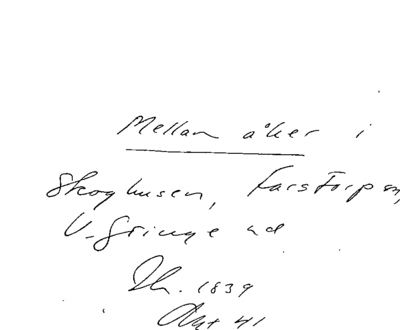 Mellan åker i
Skoghusen, Farstorp
V. Göinge hd
Th. 1839
Akt 41